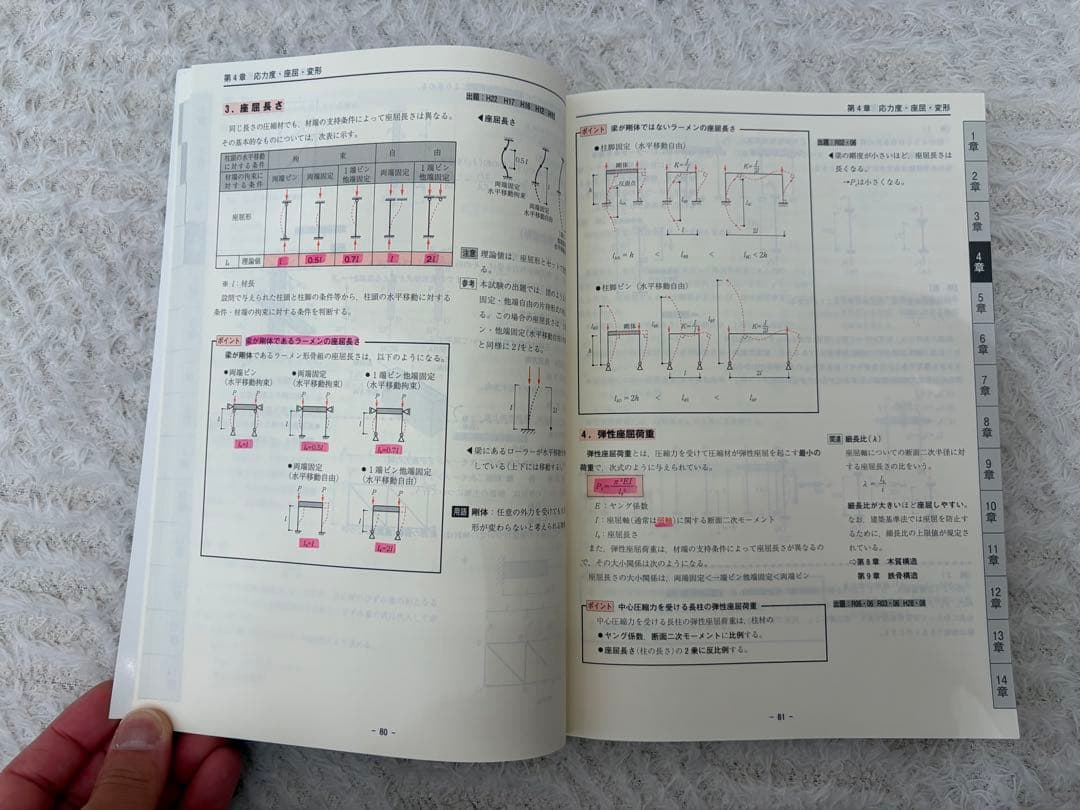 第4章 応力度・座屈・変形
3. 座屈長さ
同じ長さの圧縮材でも、材端の支持条件によって座屈長さは異なる。
その基本的なものについては、次表に示す。
柱頭の水平移動に対する条件 拘束 自由
材端の拘束に対する条件 両端ピン 両端固定 1端ピン他端固定 両端固定 1端ピン他端固定
座屈形
lk 理論値 l 0.5l 0.7l l 2l
※ l：材長
設問で与えられた柱頭と柱脚の条件等から、柱頭の水平移動に対する
条件・材端の拘束に対する条件を判断する。
ポイント 梁が剛体であるラーメンの座屈長さ
梁が剛体であるラーメン形骨組の座屈長さは、以下のようになる。
●両端ピン
(水平移動拘束)
●両端固定
(水平移動拘束)
●1端ピン他端固定
(水平移動拘束)
P P P P P P
lk=l lk=0.5l lk=0.7l
●両端固定
(水平移動自由)
●1端ピン他端固定
(水平移動自由)
P P P P
lk=l lk=2l
出題：H22 H17 H16 H12
◀座屈長さ
0.5l
両端固定
水平移動拘束
両端固定
水平移動自由
注意 理論値は、座屈形とセットで
る。
参考 本試験の出題では、図のよう
固定・他端自由の片持形式の
る。この場合の座屈長さは、
ン・他端固定(水平移動自由
と同様に2lをとる。
l 2l
◀梁にあるローラーが水平移動
している(上下には移動する
用語 剛体：任意の外力を受けても
形が変わらないと考えられる
- 80 -
第4章 応力度・座屈・変形
ポイント 梁が剛体ではないラーメンの座屈長さ
●柱脚固定 (水平移動自由)
剛体
反曲点
h
l 2l
lkA=h < lkB < lkC<2h
●柱脚ピン (水平移動自由)
剛体
h
l 2l
lkD=2h < lkE < lkF
出題：R02・06
◀梁の剛度が小さいほど、座屈長さは
長くなる。
→Peは小さくなる。
4. 弾性座屈荷重
弾性座屈荷重とは、圧縮力を受けて圧縮材が弾性座屈を起こす最小の
荷重で、次式のように与えられている。
Pe=π²EI/lk²
E：ヤング係数
I：座屈軸(通常は弱軸)に関する断面二次モーメント
lk：座屈長さ
また、弾性座屈荷重は、材端の支持条件によって座屈長さが異なるの
で、その大小関係は次のようになる。
座屈長さの大小関係は、両端固定<一端ピン他端固定<両端ピン
ポイント 中心圧縮力を受ける長柱の弾性座屈荷重
中心圧縮力を受ける長柱の弾性座屈荷重は、柱材の
●ヤング係数、断面二次モーメントに比例する。
●座屈長さ(柱の長さ)の2乗に反比例する。
関連 細長比(λ)
座屈軸についての断面二次半径に対
する座屈長さの比をいう。
λ=lk/i
細長比が大きいほど座屈しやすい。
なお、建築基準法では座屈を防止す
るために、細長比の上限値が規定さ
れている。
⇨第8章 木質構造
第9章 鉄骨構造
出題：R06・06 R03・06 H28・06
- 81 -
1章
2章
3章
4章
5章
6章
7章
8章
9章
10章
11章
12章
13章
14章